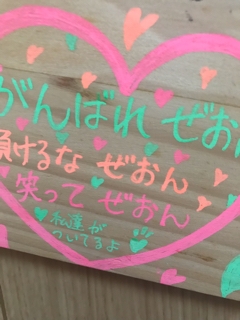 がんばれ ぜおん
負けるな ぜおん
笑って ぜおん
私達が
ついてるよ